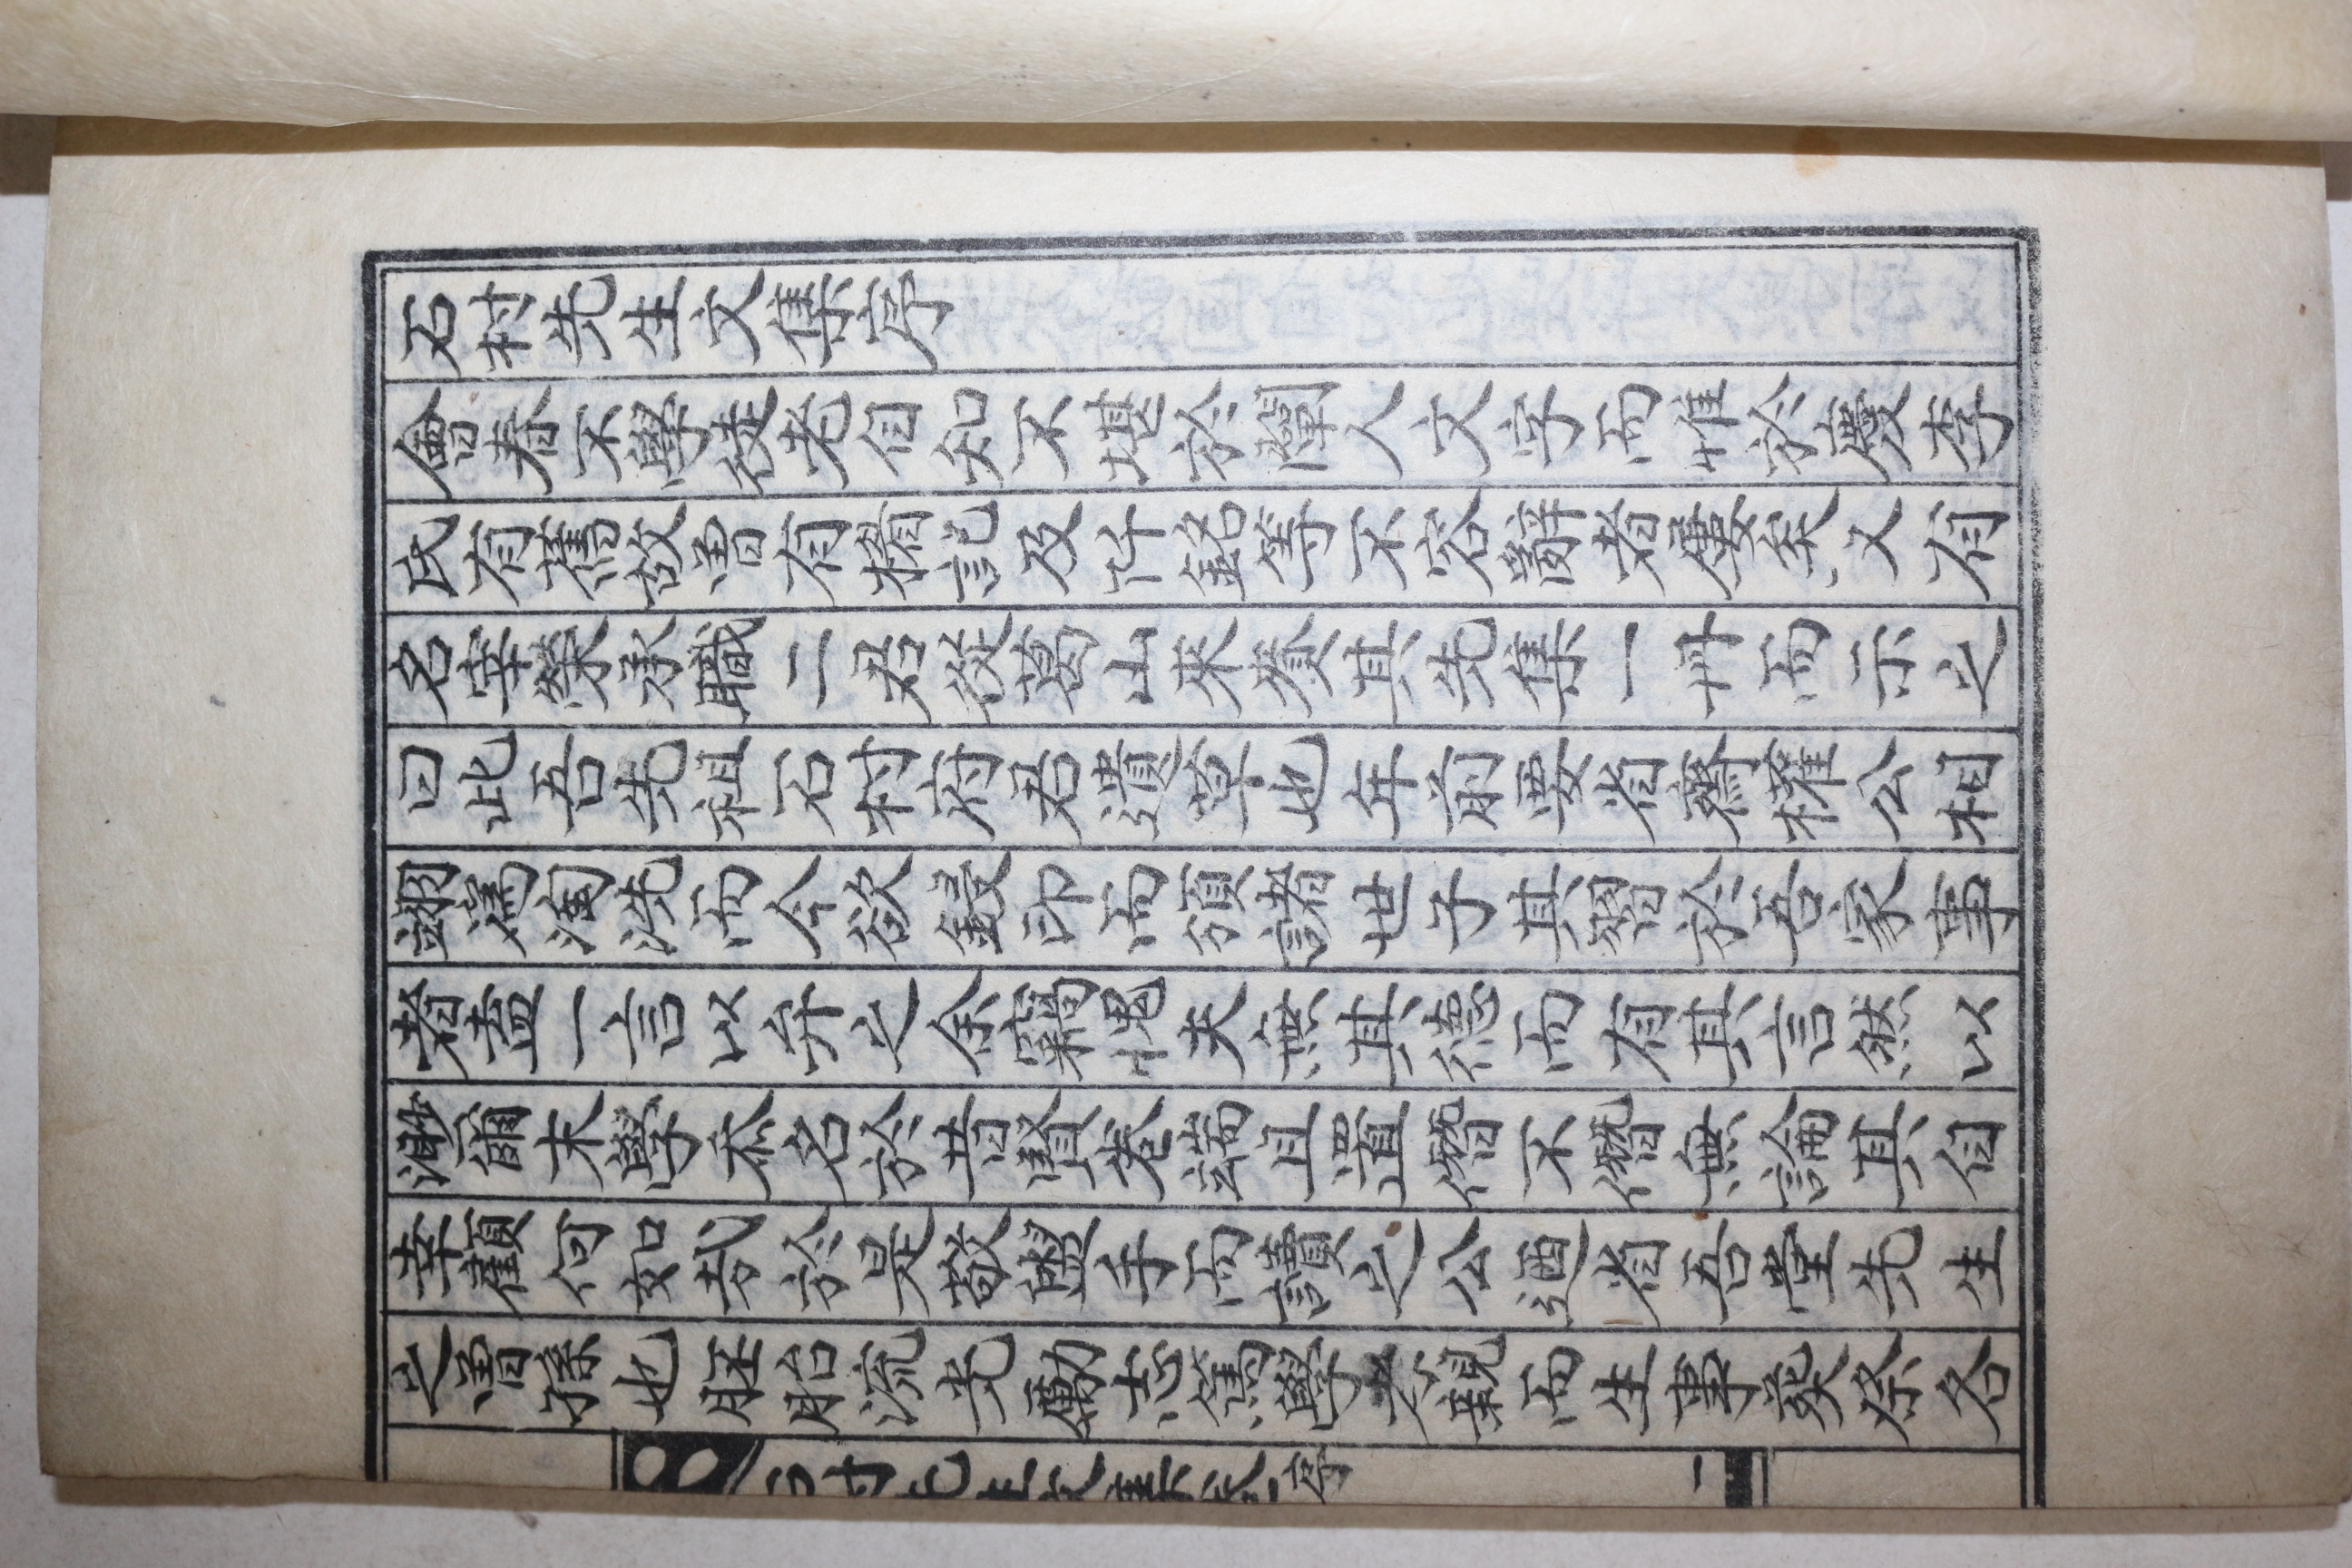 石村先生文集序
會春不學徒老自知不堪於闡人文字而惟於慶李
氏有舊故曽有楣記及阡銘等不容辭者屢矣又有
名宰榮承職二君從葛山來賚其先集一冊而示之
曰此吾先祖石村府君遺草也年前要省齋權公相
翊爲淘洗而今欲鋟印而頒諸世子其習於吾家事
者盍一言以弁之余竊愧夫無其德而有其言然以
渺爾末學忝名於昔賢卷端且置僭不僭無論其自
幸顧何如哉於是敬盥手而讀之公迺省吾堂先生
之曽孫也胚胎流光勵志篤學孝親而生事葬祭各
石村先生文集卷序
一